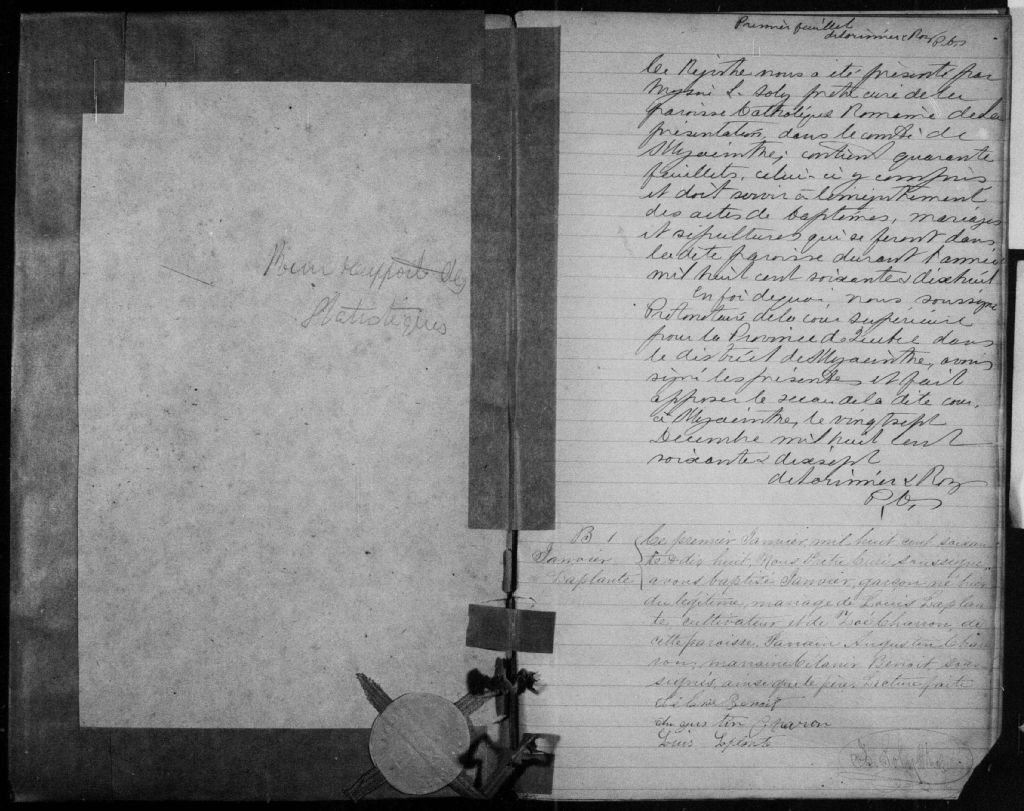 Pour rapport des
Statistiques
Premier feuillet
deLorimier & Roy
P.C.S
Ce Régistre nous a été présenté par
Messire L. Soly prêtre curé de la
paroisse Catholique Romaine de la
présentation, dans le comté de
St Hyacinthe; contient quarante
feuillets, celui-ci y compris
et doit servir à l'enrégistrement
des actes de baptêmes, mariages
et sépultures qui se feront dans
la dite paroisse durant l'année
mil huit cent soixante & dix huit
En foi de quoi, nous soussigné
Protonotaire de la cour supérieure
pour la Province de Québec dans
le district de St Hyacinthe, avons
signé les présentes et fait
apposer le sceau de la dite cour,
à St Hyacinthe, le vingt sept
Décembre mil huit cent
soixante & dix sept
deLorimier & Roy
P.C.S
B 1
Janvier
Laplante
Le premier Janvier, mil huit cent soixan-
te & dix huit, Nous Prêtre Curé soussigné
avons baptisé Janvier, garçon né hier
du légitime mariage de Louis Laplan-
te, cultivateur et de Zoé Charron, de
cette paroisse. Parrain Augustin Char-
ron; marraine Célanir Benoit, sous-
signés, ainsi que le père. Lecture faite
Célanir Benoit
Augustin Charon
Louis Laplante
L. Soly Ptre